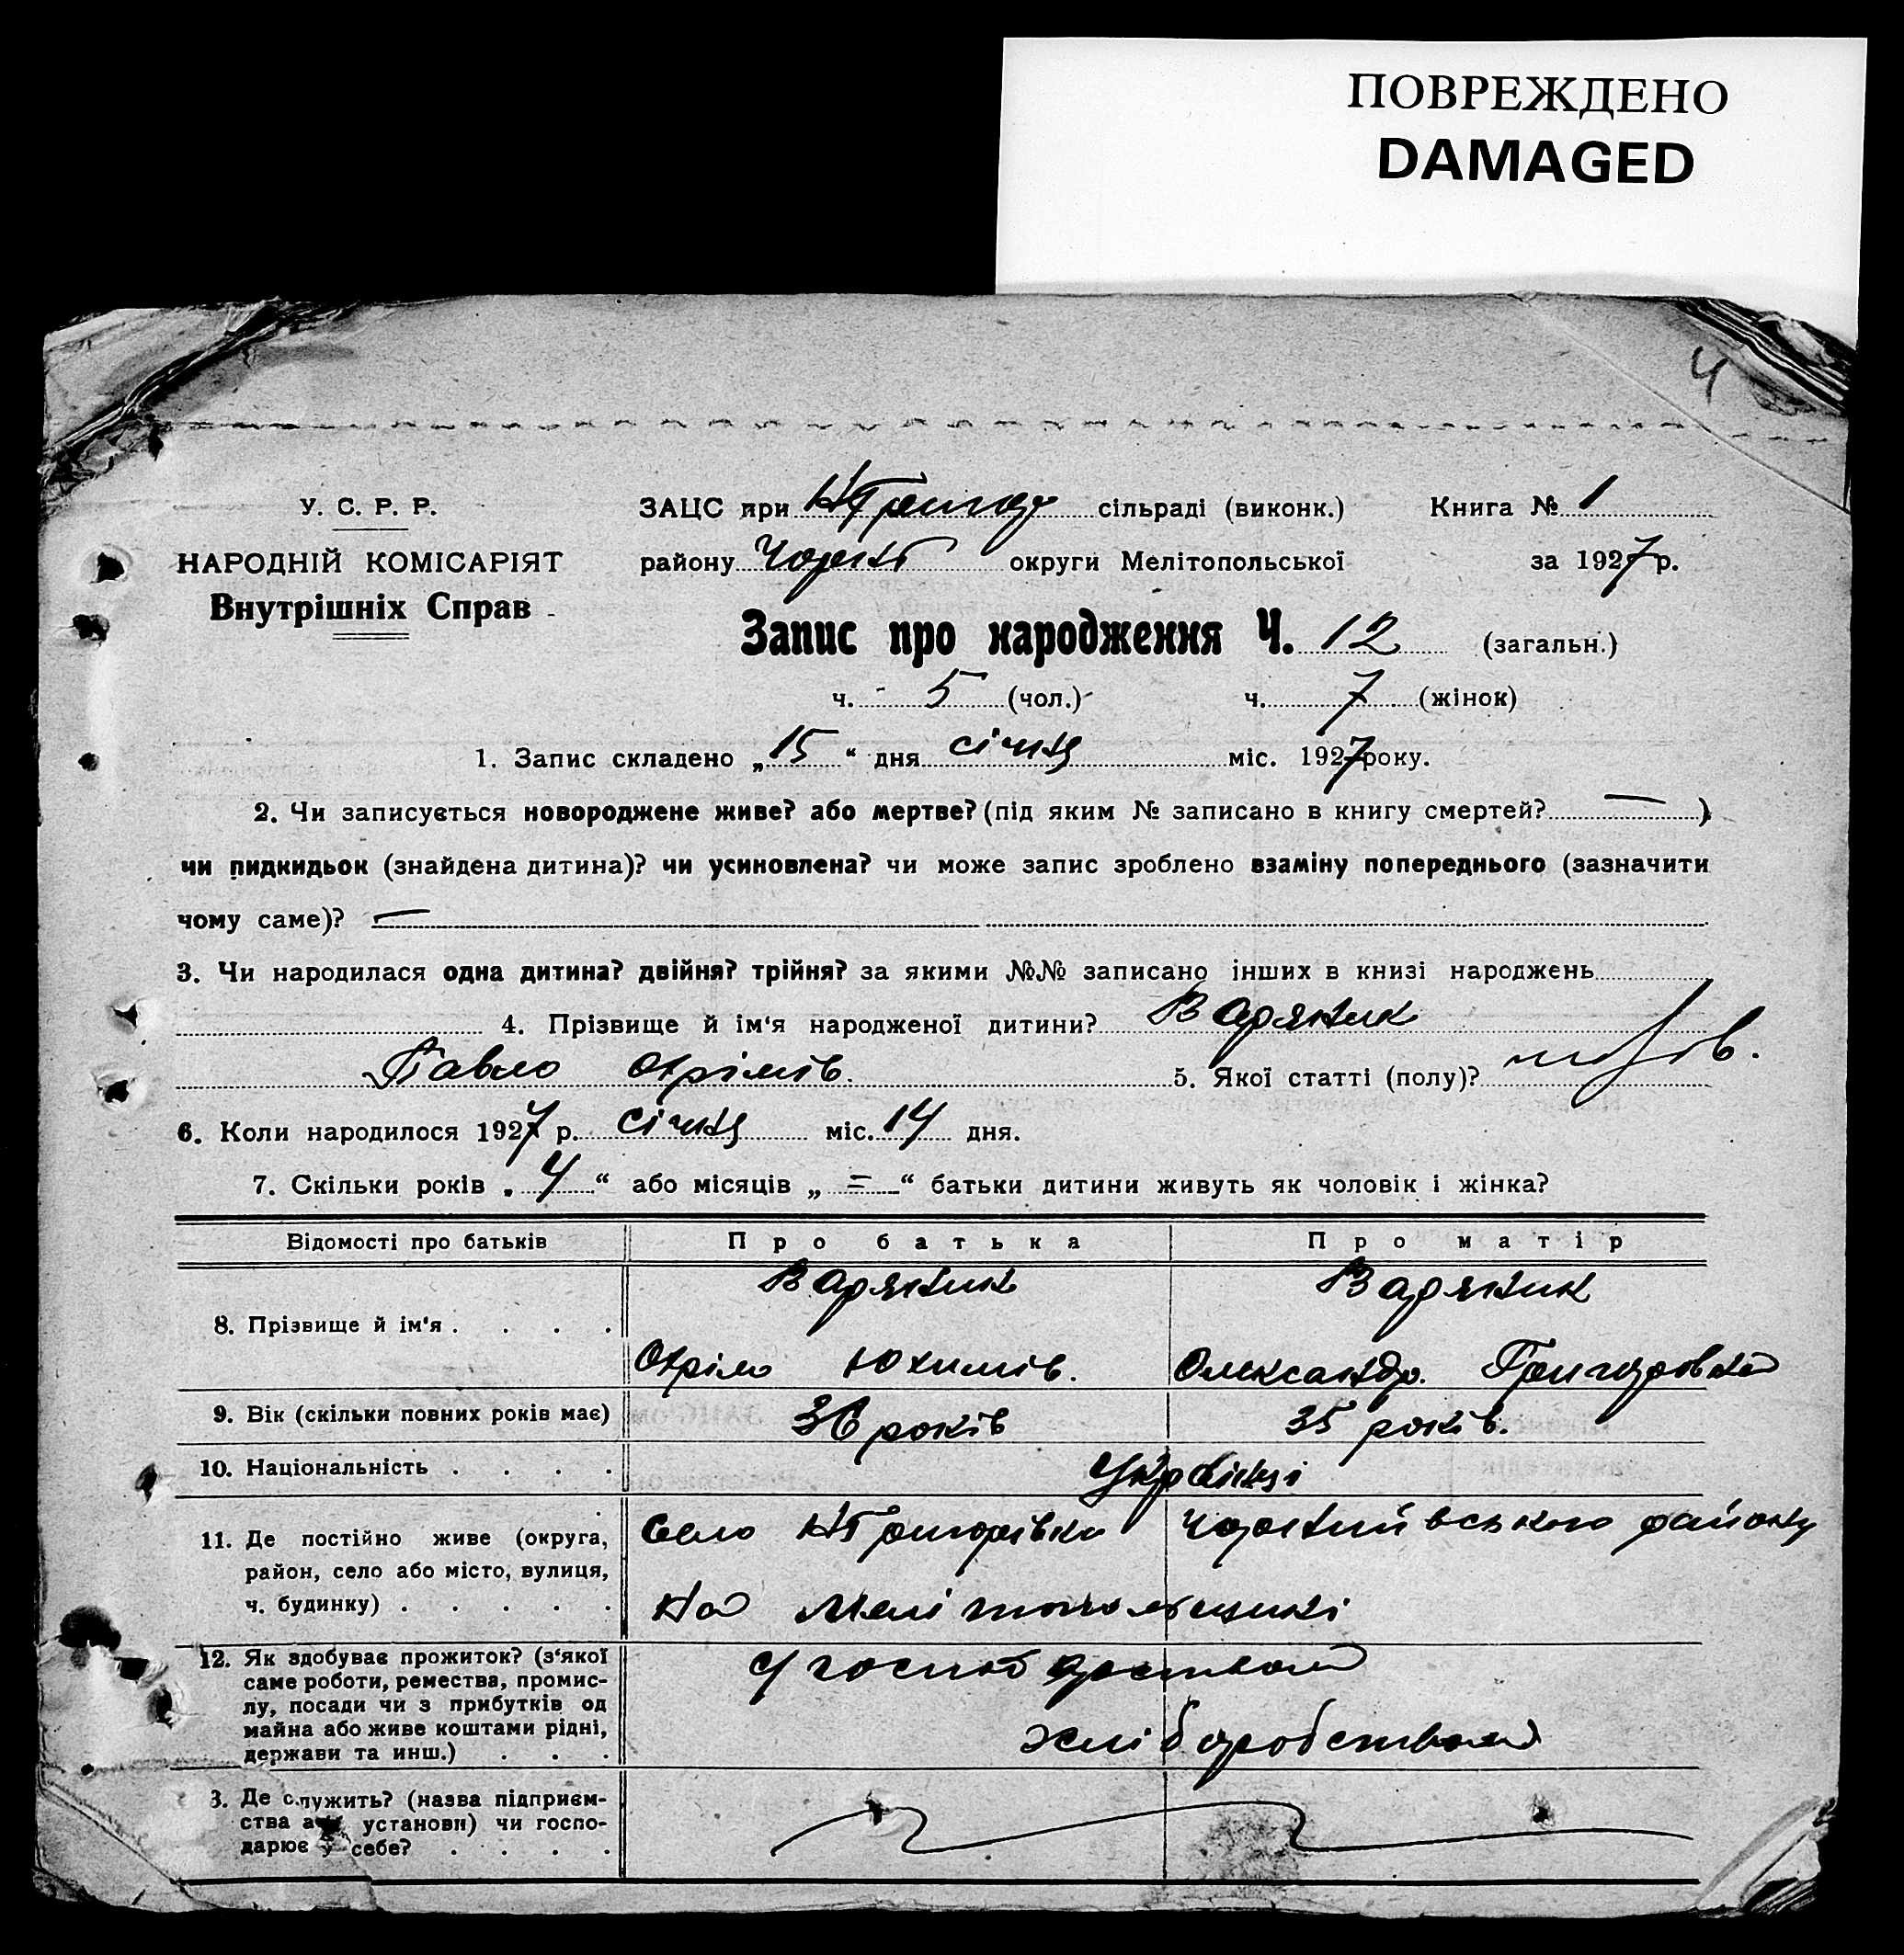 ПОВРЕЖДЕНО
DAMAGED
4
У. С. Р. Р.
НАРОДНІЙ КОМІСАРІЯТ
Внутрішніх Справ
ЗАЦС при сільраді (виконк.) Книга № 1
району округи Мелітопольської за 1927 р.
Запис про народження Ч. 12 (загальн.)
ч. 5 (чол.) ч. 7 (жінок)
1. Запис складено „15“ дня січня міс. 1927 року.
2. Чи записується новороджене живе? або мертве? (під яким № записано в книгу смертей? — )
чи пидкидьок (знайдена дитина)? чи усиновлена? чи може запис зроблено взаміну попереднього (зазначити
чому саме)? —
3. Чи народилася одна дитина? двійня? трійня? за якими №№ записано інших в книзі народжень
4. Прізвище й ім‘я народженої дитини? Варяник
Павло Охрімів. 5. Якої статті (полу)?
6. Коли народилося 1927 р. січня міс. 14 дня.
7. Скільки років „4“ або місяців „=“ батьки дитини живуть як чоловік і жінка?
Відомості про батьків Про батька Про матір
8. Прізвище й ім‘я . . . . Варяник Варяник
Охрім Юхимів. Олександр. Григоровна
9. Вік (скільки повних років має) 36 років 35 років.
10. Національність . . . . Українці
11. Де постійно живе (округа, район, село або місто, вулиця, ч. будинку) . . . . . Село НГригорівка району
На Мелітопольщині
12. Як здобуває прожиток? (з‘якої саме роботи, ремества, промислу, посади чи з прибутків од майна або живе коштами рідні, держави та инш.) . . .
хліборобством
3. Де служить? (назва підприємства установи) чи господарює у себе? . . . .